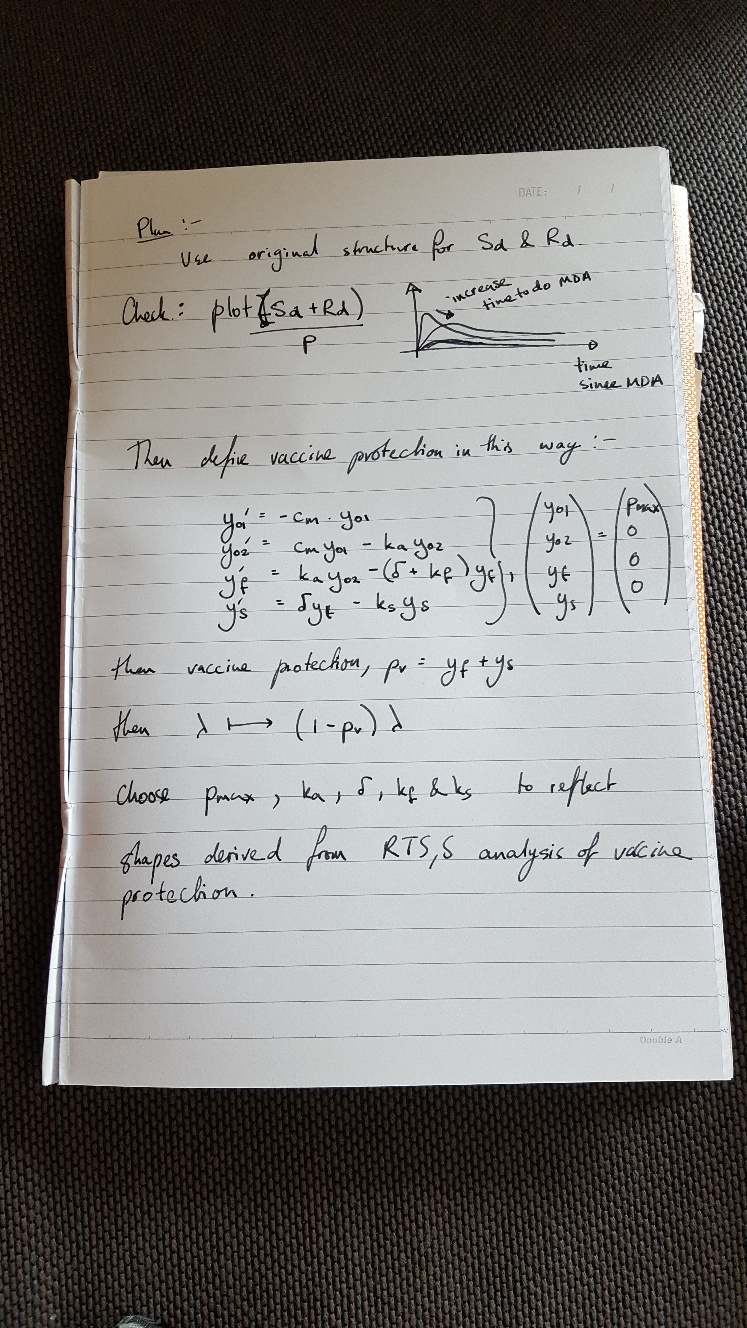 DATE: / /
Plan :-
Use original structure for Sd & Rd
Check : plot (Sd + Rd)
P
increase
time to do MDA
time
since MDA
Then define vaccine protection in this way :-
yo1' = -cm . yo1
yo2' = cm yo1 - ka yo2
yf' = ka yo2 - (δ + kf) yf
ys' = δyf - ks ys
, (yo1 yo2 yf ys) = (Pmax 0 0 0)
then vaccine protection, pv = yf + ys
then λ ⟼ (1-pv) λ
choose pmax, ka, δ, kf & ks to reflect
shapes derived from RTS,S analysis of vaccine
protection.
Double A